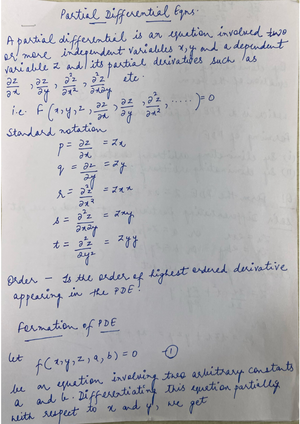 Partial Differential Eqns.
A partial differential is an equation involved two
or more independent variables x, y and a dependent
variable z and its partial derivatives such as
∂z/∂x , ∂z/∂y , ∂²z/∂x² , ∂²z/∂x∂y etc.
i.e. F(x, y, z, ∂z/∂x, ∂z/∂y, ∂²z/∂x², .....) = 0
Standard notation
p = ∂z/∂x = zx
q = ∂z/∂y = zy
r = ∂²z/∂x² = zxx
s = ∂²z/∂x∂y = zxy
t = ∂²z/∂y² = zyy
Order — Is the order of highest ordered derivative
appearing in the PDE.
Formation of PDE
Let f(x, y, z, a, b) = 0 — ①
be an equation involving two arbitrary constants
a and b. Differentiating this equation partially
with respect to x and y, we get